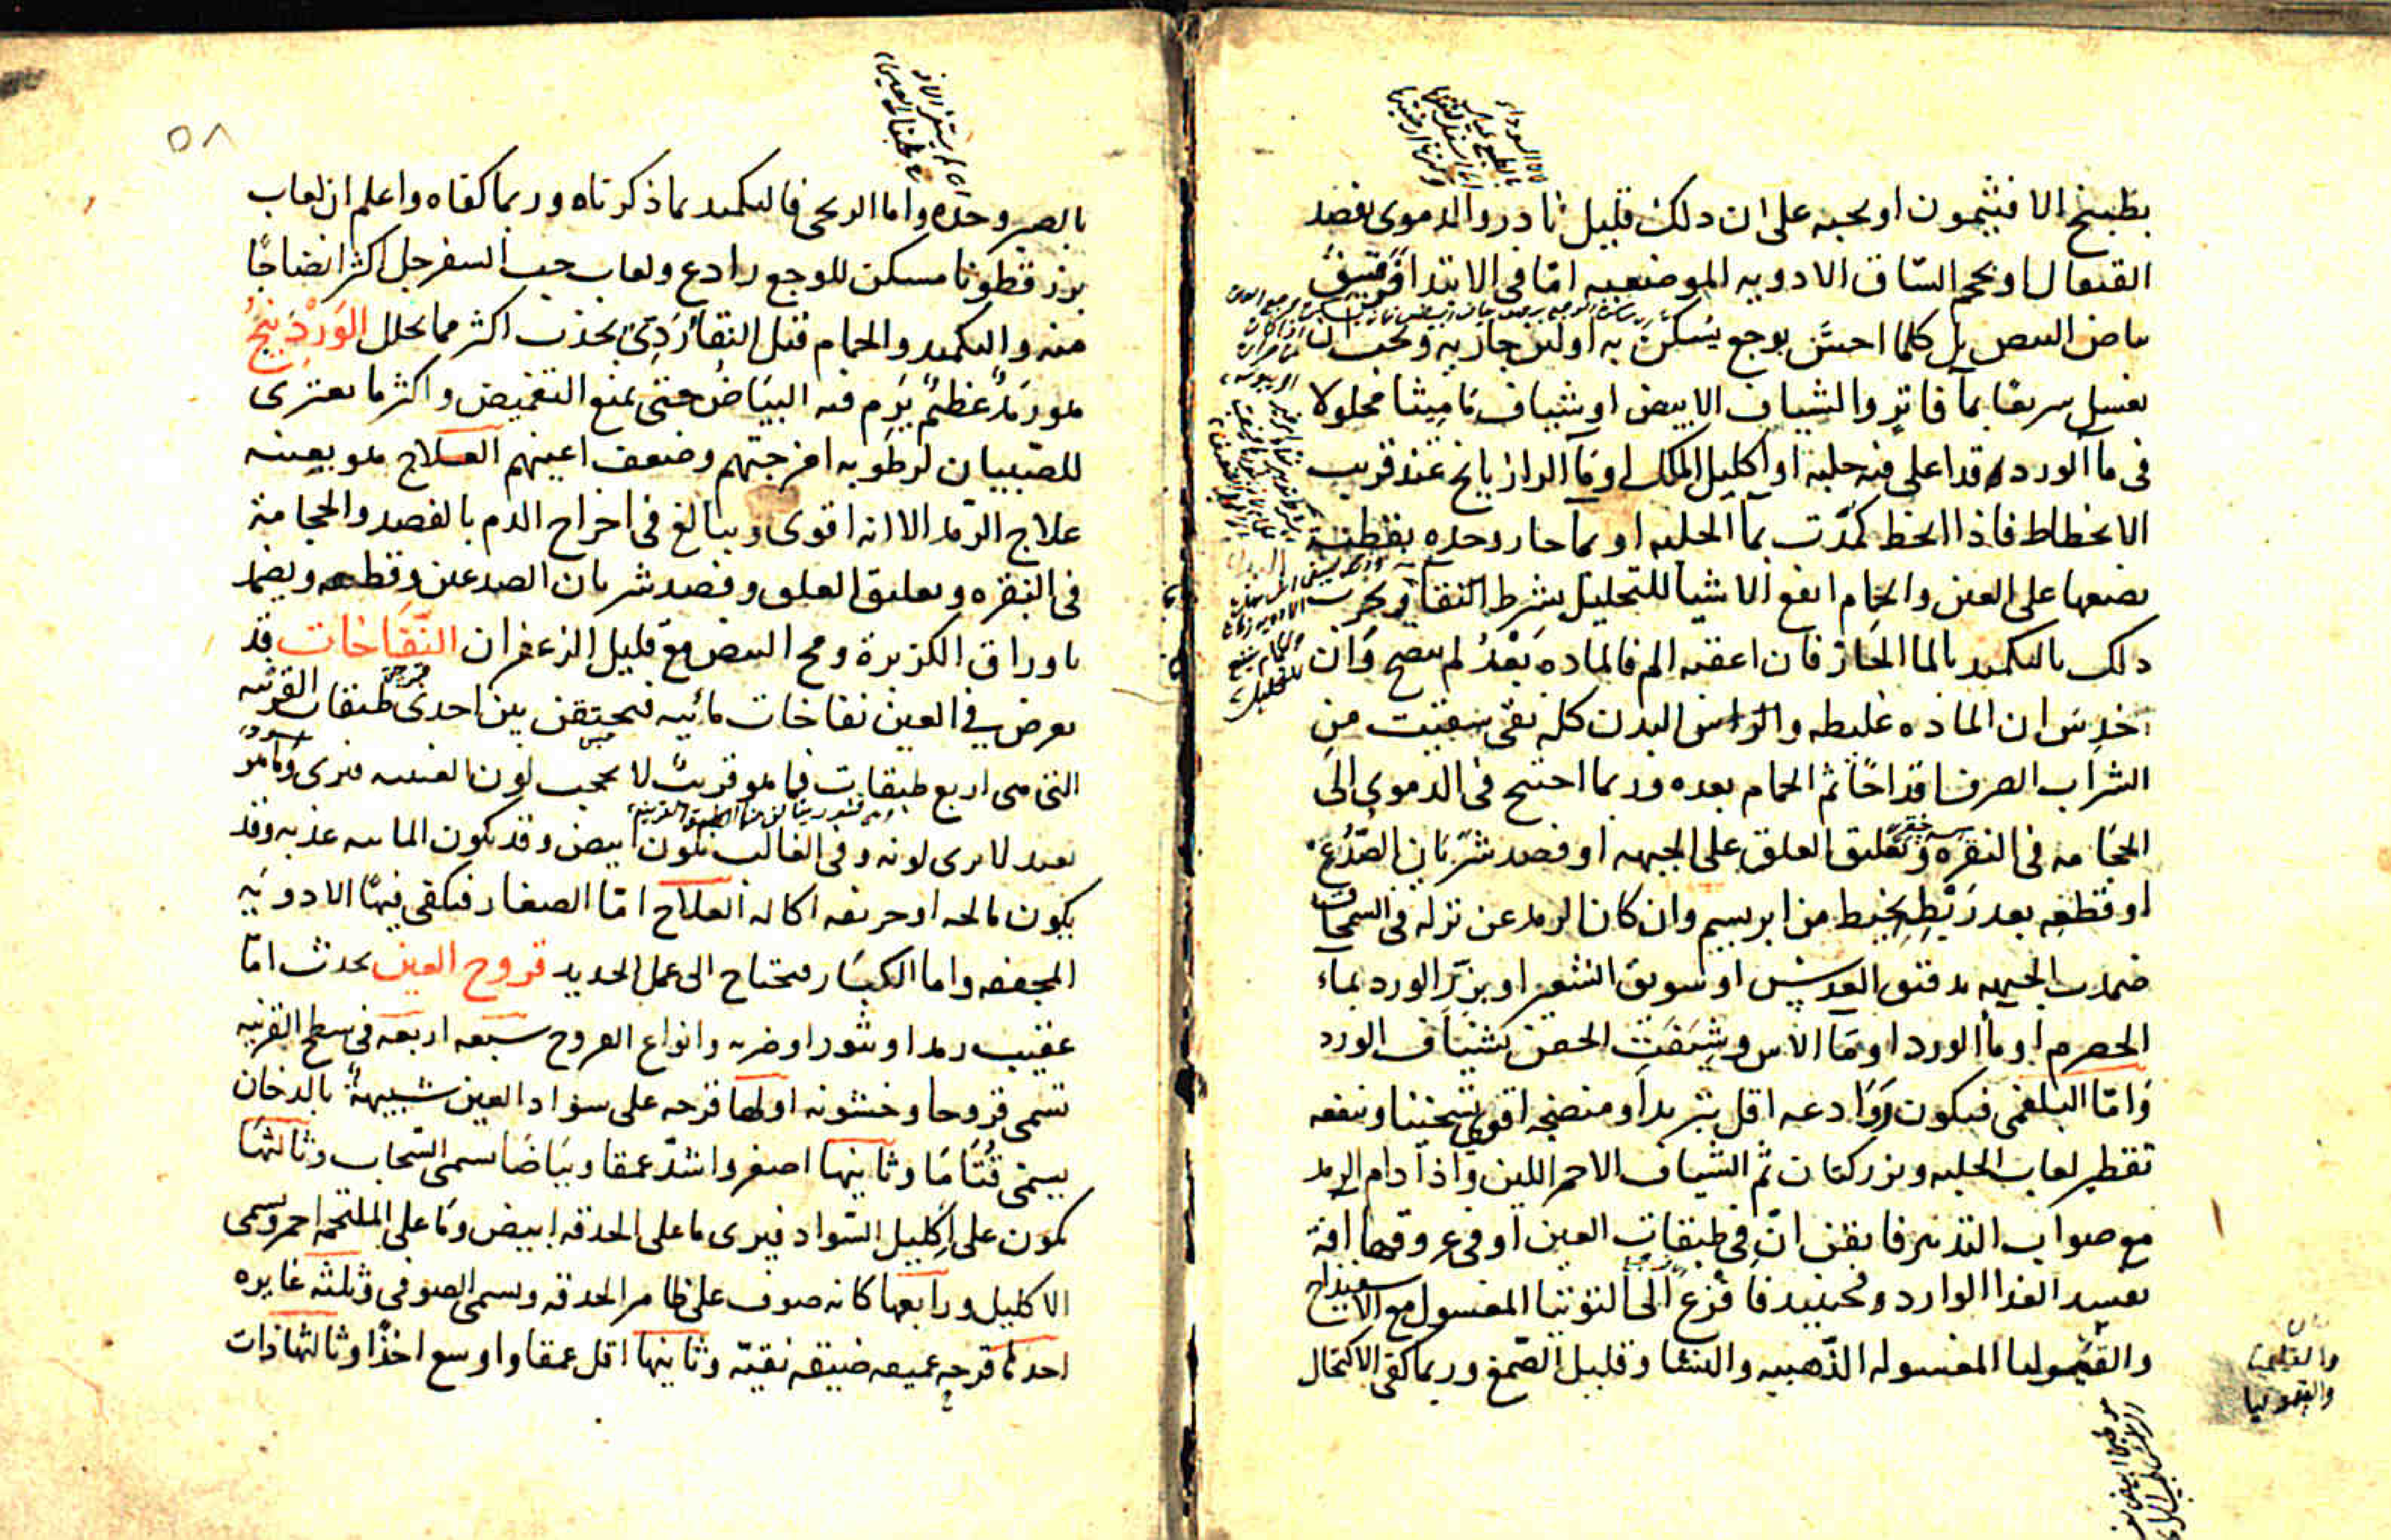 بطبيخ الافتيمون او بحبه على ان ذلك قليل نادر والدموى بفصد
القيفال او بحجم الساق الادويه الموضعيه امّا فى الابتدا فرقيق
بياض البيض بل كلما احسّ بوجع يسكن به او لبن جاريه ويجب ان
يغسل سريعًا بمآ فاتر والشياف الابيض او شياف ماميثا محلولا
فى مآ الورد قد اغلى فيه حلبه او اكليل الملك او مآ الرازيانج عند قريب
الانحطاط فاذا انحط كمّدت بمآ الحلبه او بمآ حار وحده بقطنة
يضعها على العين والحمام انفع الاشيا للتحليل بشرط النقآ ويجرب
ذلك بالتكميد بالما الحار فان اعقبه الم فالماده بَعْدُ لم تنضج وان
حدس ان الماده غليظه والراس البدن كله نقى سقيت من
الشراب الصرف اقداحًا ثم الحمام بعده وربما احتيج فى الدموى الى
الحجامه فى النقره وتعليق العلق على الجبهه او فصد شريان الصّدغ
او قطعه بعد رَبْطِه بخيط من ابريسم وان كان الرمد عن نزله فى السمحاق
ضمدت الجبهه بدقيق العدس او سويق الشعير او بزر الورد بماء
الحصرم او مآ الورد او مآ الاس وشيفت الجفن بشياف الورد
وامّا البلغمى فيكون روادعه اقل تبريدا ومنضجه اقوى تسخينا وينفعه
تقطير لعاب الحلبه وبزر كتان ثم الشياف الاحمر اللين واذا دام الرمد
مع صواب التدبير فايقن انّ فى طبقات العين او فى عروقها افة
تفسد الغذا الوارد وحينيذ فافزع الى التوتيا المغسول مع الاسفيداج
والقيموليا المغسوله الذهبيه والنشا وقليل الصّمغ وربما كفى الاكتحال
والقيموليا
٥٨
بالصبر وحده واما الريحى فالتكميد بما ذكرناه وربما كفاه واعلم ان لعاب
بزرقطونا مسكن للوجع رادع ولعاب حب السفرجل اكثر انضاجًا
منه والتكميد والحمام قبل النقآ رَدِىّ يجذب اكثر مما يحلل الوَرْدِينج
هو رَمَدٌ عظيمٌ يَرِم فيه البياضُ حتى يمنع التغميض واكثر ما يعترى
للصّبيان لرطوبه امزجتهم وضعف اعينهم العلاج هو بعينه
علاج الرّمد الا انه اقوى ويبالغ فى اخراج الدم بالفصد والحجامة
فى النقره وتعليق العلق وفصد شريان الصدغين وقطعه ويضمد
باوراق الكزبرة ومح البيض مع قليل الزعفران النّفاخات قد
يعرض فى العين نفاخات مائيه فيحتقن بين احدى طبقات القرنيه
التى هى اربع طبقات فما هو قريبٌ لا يحجب لون العنبيه فترى وما هو
بعيد لا يرى لونه وفى الغالب يكون ابيض وقد يكون المائيه عذبه وقد
يكون مالحه او حريفه اكاله العلاج امّا الصغار فيكفى فيها الادويه
المجففه واما الكبار فيحتاج الى عمل الحديد قروح العين يحدث امّا
عقيب رمد او بثور او ضربه وانواع القروح سبعه اربعه فى سطح القرنيه
تسمى قروحا وخشونه اولها قرحه على سواد العين شبيهةً بالدخان
يسمى قُتَامًا وثانيها اصغر واشدّ عمقا وبياضًا تسمى السّحاب وثالثها
يكون على اكليل السّواد فيرى ما على الحدقه ابيض وما على الملتحمه احمر وتسمى
الاكليل ورابعها كانه صوف على ظاهر الحدقه ويسمى الصوفى وثلثه غايره
احدها قرحه عميقه ضيقه نقيّه وثانيها اقل عمقا واوسع اخذًا وثالثها ذات